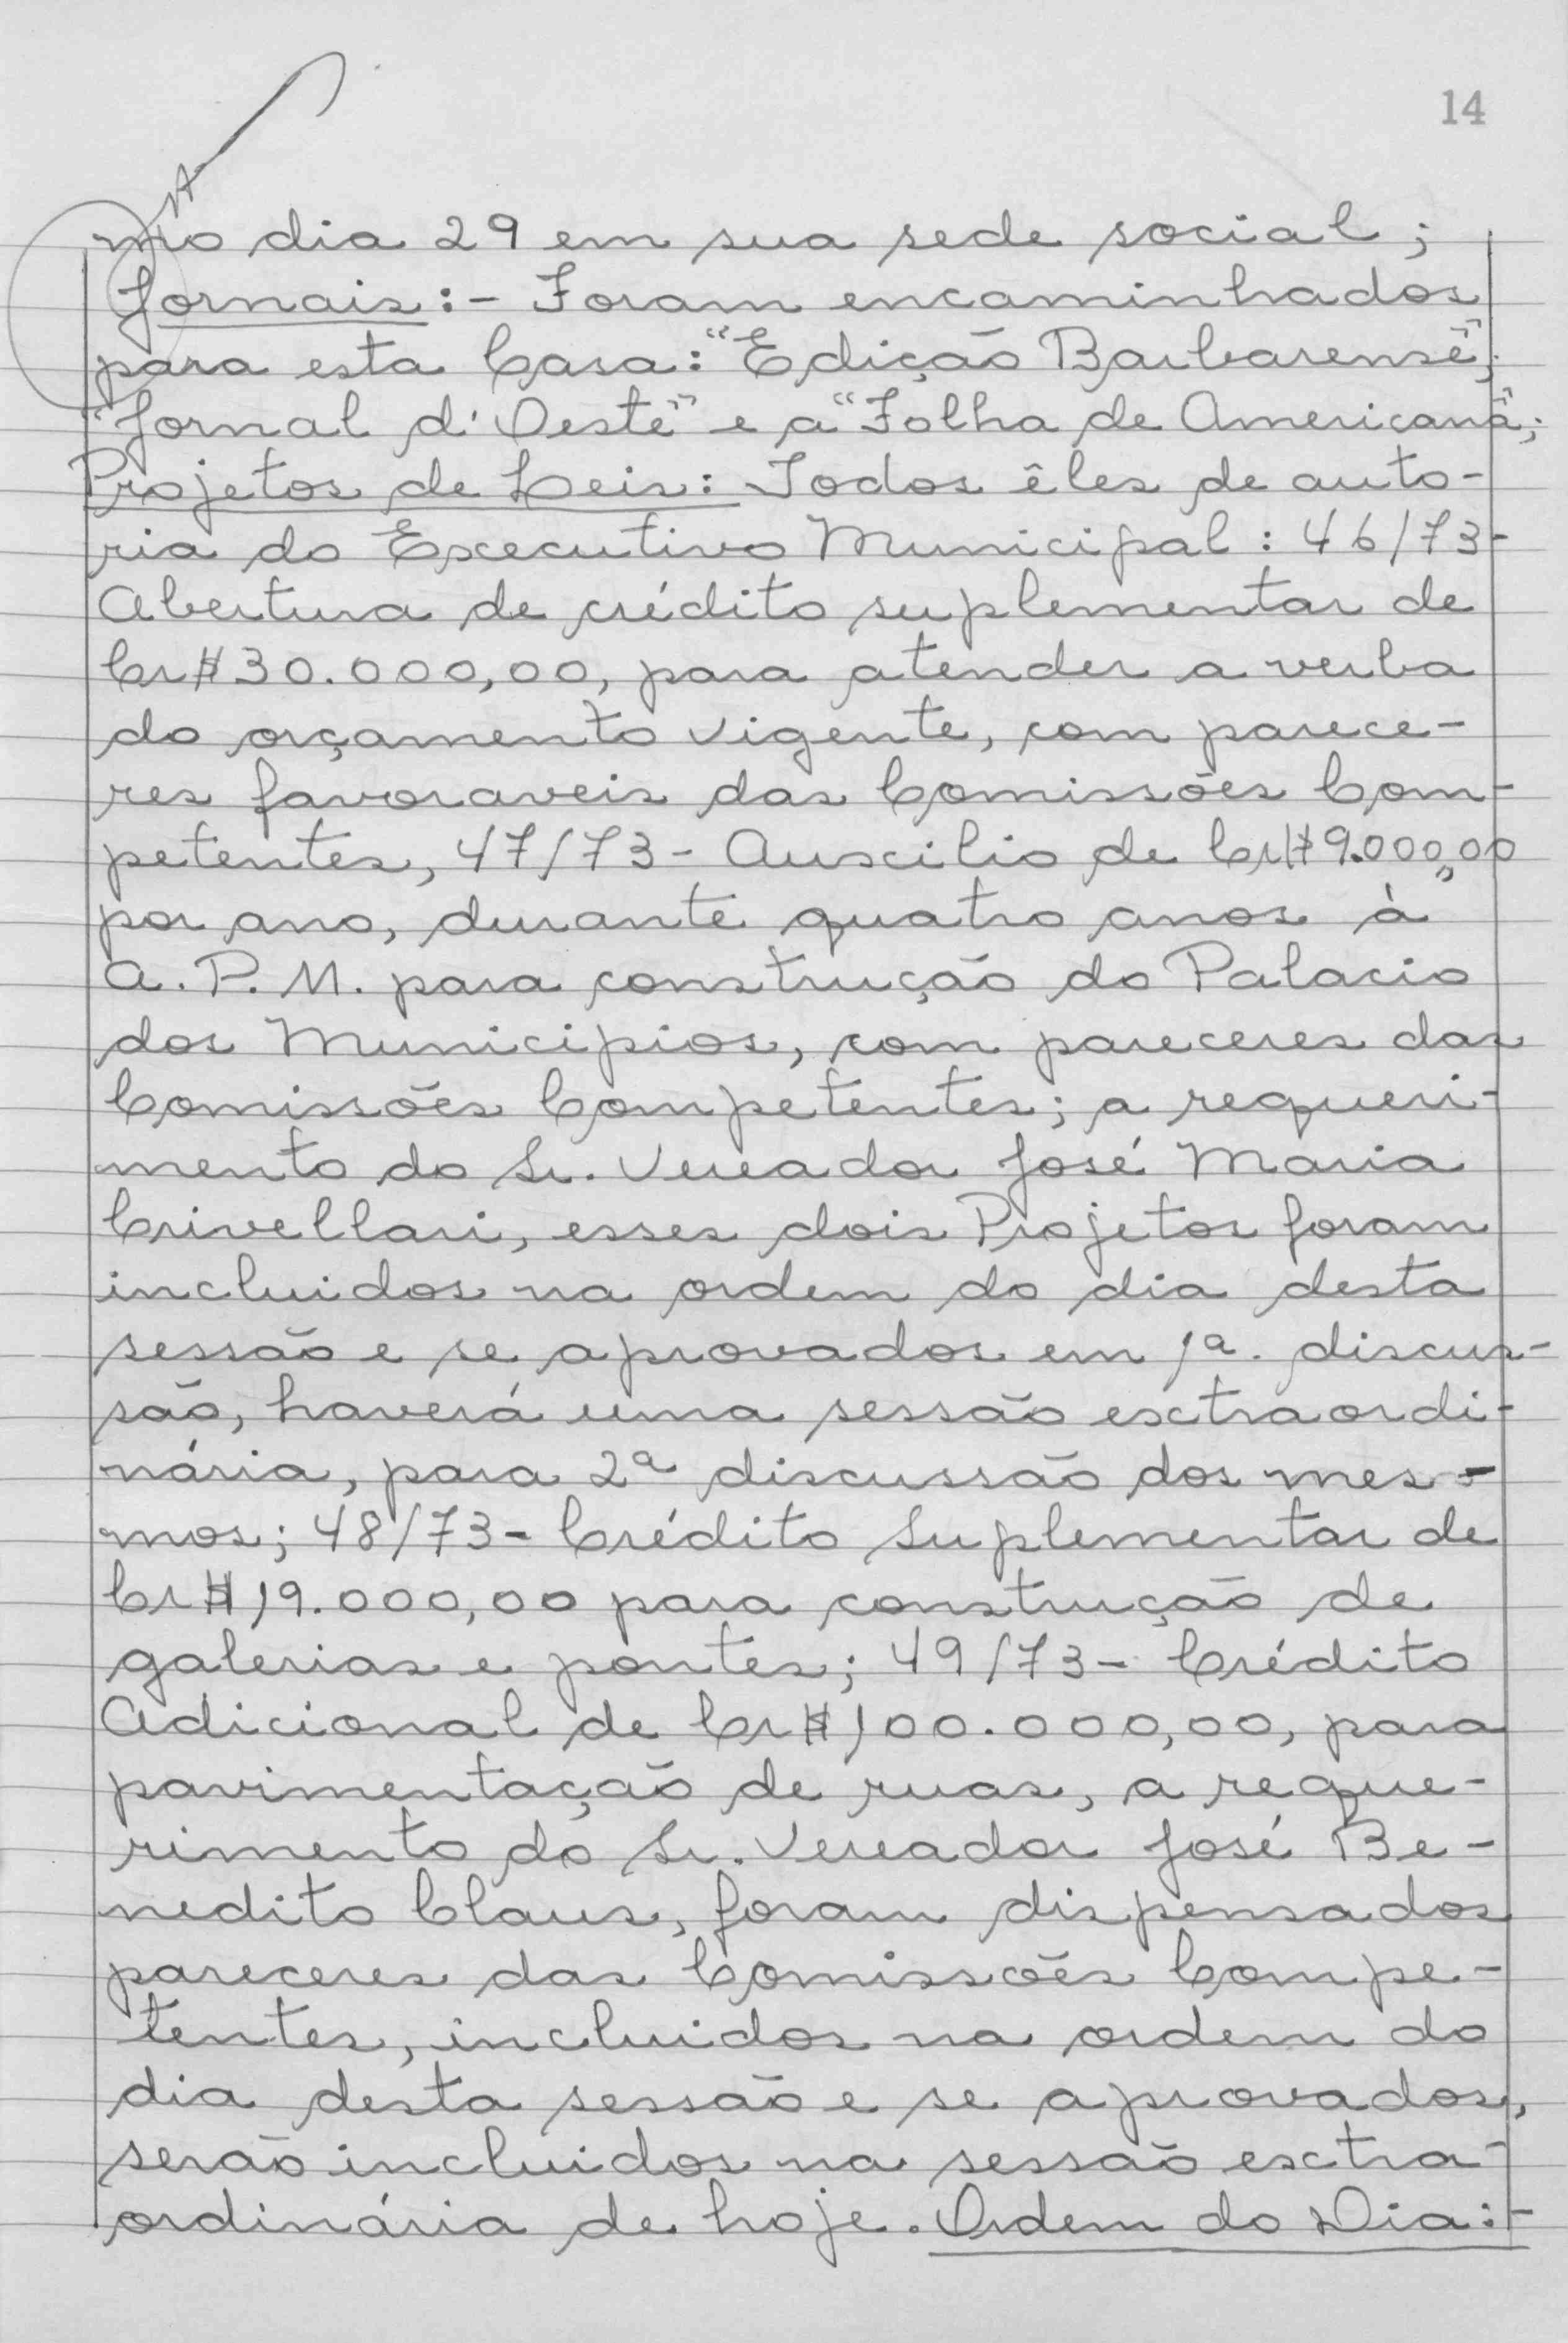 14
mo dia 29 em sua sede social;
Jornais:- Foram encaminhados
para esta Casa: "Edição Barbarense";
"Jornal d'Oeste" e a "Folha de Americana";
Projetos de Leis: Todos êles de auto-
ria do Executivo Municipal: 46/73-
Abertura de crédito suplementar de
Cr$30.000,00, para atender a verba
do orçamento vigente, com parece-
res favoraveis das Comissões Com-
petentes, 47/73- Auxilio de Cr$9.000,00
por ano, durante quatro anos à
A.P.M. para construção do Palacio
dos Municipios, com pareceres das
Comissões Competentes; a requeri-
mento do Sr. Vereador José Maria
Crivellari, esses dois Projetos foram
incluidos na ordem do dia desta
sessão e se aprovados em 1a. discus-
são, haverá uma sessão extraordi-
nária, para 2a discussão dos mes-
mos; 48/73- Crédito Suplementar de
Cr$19.000,00 para construção de
galerias e pontes; 49/73- Crédito
Adicional de Cr$100.000,00, para
pavimentação de ruas, a reque-
rimento do Sr. Vereador José Be-
nedito Claus, foram dispensados
pareceres das Comissões Compe-
tentes, incluidos na ordem do
dia desta sessão e se aprovados,
serão incluidos na sessão extra-
ordinária de hoje. Ordem do Dia:-